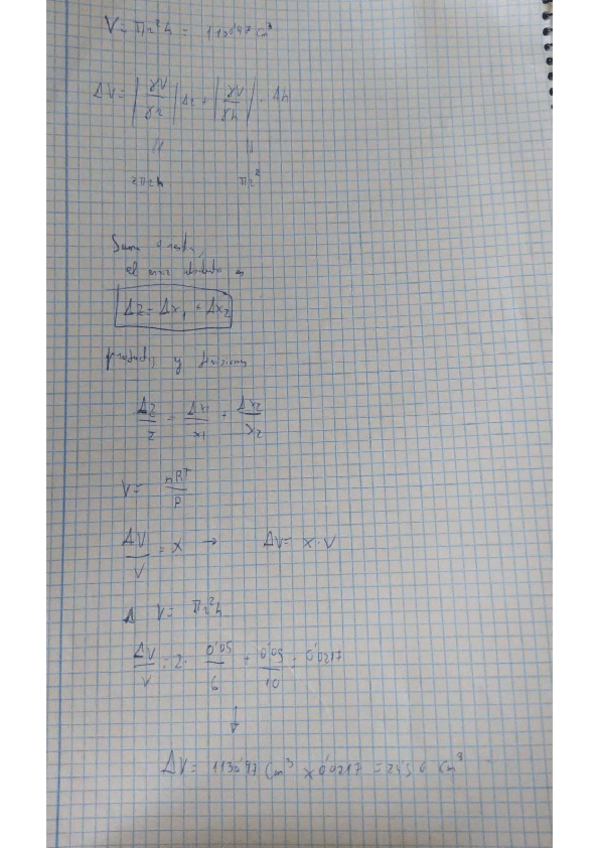 V = πr²h = 1130'97 cm³
ΔV = |γV/γr| Δr + |γV/γh| · Δh
2πrh πr²
Suma o resta,
el error absoluto es
Δz = Δx₁ + Δx₂
producto y
Δz/z = Δx₁/x₁ + Δx₂/x₂
V = nRT/P
ΔV/V = x → ΔV = x · V
V = πr²h
ΔV/V = 2 · 0'05/6 + 0'05/10 = 0'0217
↓
ΔV = 1130'97 cm³ x 0'0217 = 24'56 cm³